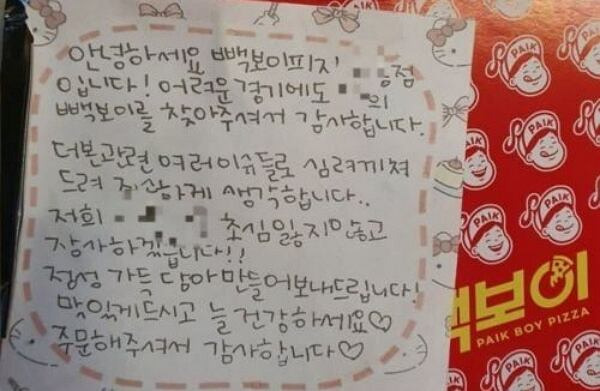 안녕하세요 빽보이피자
점
입니다! 어려운 경기에도 의
빽보이를 찾아주셔서 감사합니다.
더본관련 여러이슈들로 심려끼쳐
드려 죄송하게 생각합니다..
저희 초심 잃지않고
장사하겠습니다!!
정성 가득 담아 만들어보내드립니다!
맛있게드시고 늘 건강하세요♡
주문해주셔서 감사합니다♡
PAIK
백보이
PAIK BOY PIZZA